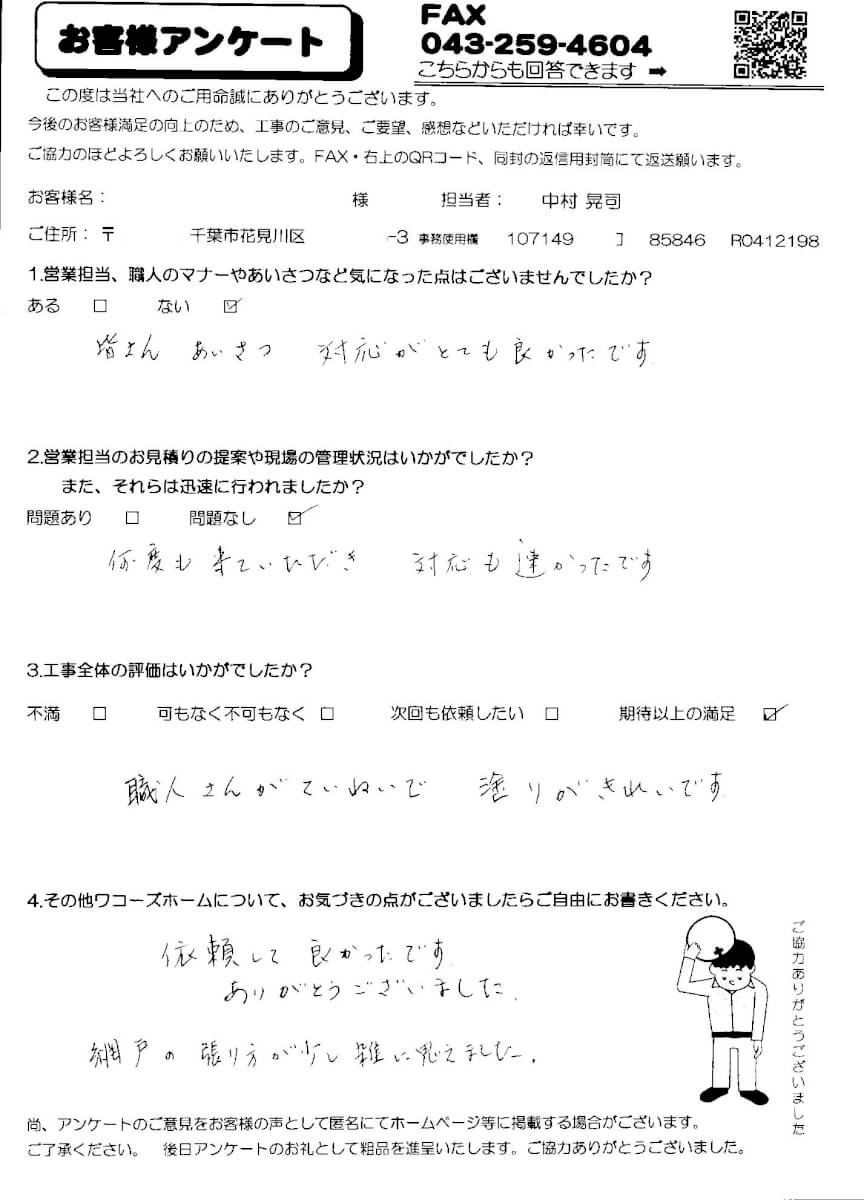 お客様アンケート
FAX
043-259-4604
こちらからも回答できます ➡
この度は当社へのご用命誠にありがとうございます。
今後のお客様満足の向上のため、工事のご意見、ご要望、感想などいただければ幸いです。
ご協力のほどよろしくお願いいたします。FAX・右上のQRコード、同封の返信用封筒にて返送願います。
お客様名： 様 担当者： 中村 晃司
ご住所：〒 千葉市花見川区 -3 事務使用欄 107149 ] 85846 R0412198
1.営業担当、職人のマナーやあいさつなど気になった点はございませんでしたか？
ある □ ない ☑
皆さん あいさつ 対応がとても良かったです
2.営業担当のお見積りの提案や現場の管理状況はいかがでしたか？
また、それらは迅速に行われましたか？
問題あり □ 問題なし ☑
何度も来ていただき 対応も速かったです
3.工事全体の評価はいかがでしたか？
不満 □ 可もなく不可もなく □ 次回も依頼したい □ 期待以上の満足 ☑
職人さんがていねいで 塗りがきれいです
4.その他ワコーズホームについて、お気づきの点がございましたらご自由にお書きください。
依頼して良かったです
ありがとうございました.
網戸の張り方が少し雑に見えました.
ご協力ありがとうございました
尚、アンケートのご意見をお客様の声として匿名にてホームページ等に掲載する場合がございます。
ご了承ください。 後日アンケートのお礼として粗品を進呈いたします。ご協力ありがとうございました。